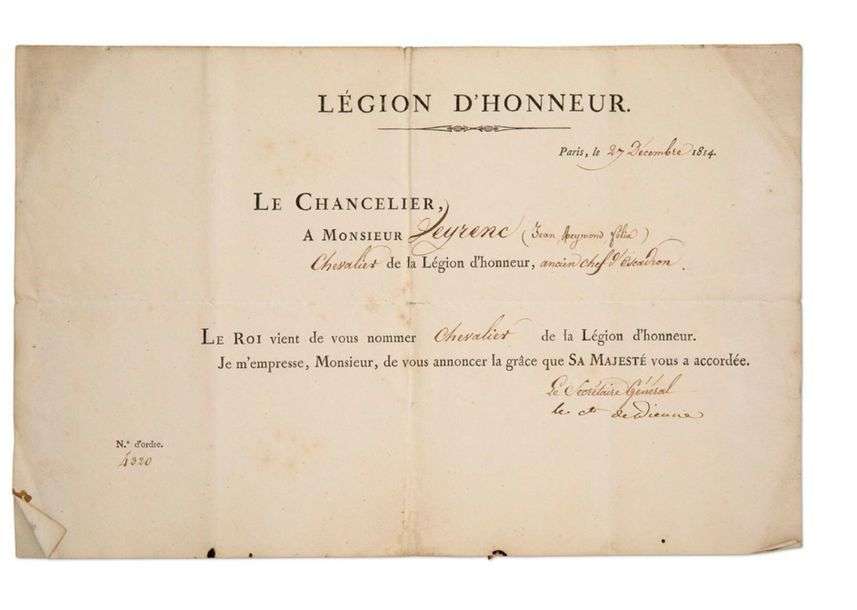 LÉGION D'HONNEUR.
Paris, le 27 Décembre 1814.
LE CHANCELIER,
A MONSIEUR Peyrenc (Jean Reymond félix)
Chevalier de la Légion d'honneur, ancien chef d'escadron.
LE ROI vient de vous nommer Chevalier de la Légion d'honneur.
Je m'empresse, Monsieur, de vous annoncer la grâce que SA MAJESTÉ vous a accordée.
Le Secrétaire Général
le cte de
N.° d'ordre.
4320